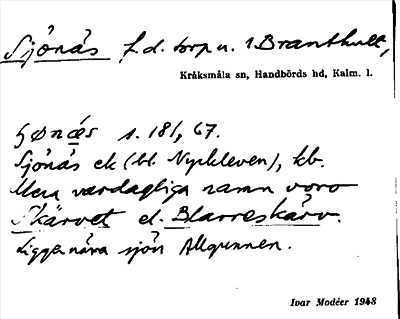 Sjönäs f.d. torp u. 1 Branthult,
Kråksmåla sn, Handbörds hd, Kalm. l.
ʃønæs 1. 181, 67.
Sjönäs ek (bl. Nyckleven), kb.
Mera vardagliga namn voro
Skärvet el. Blarreskärv.
Ligger nära sjön Allgunnen.
Ivar Modéer 1948